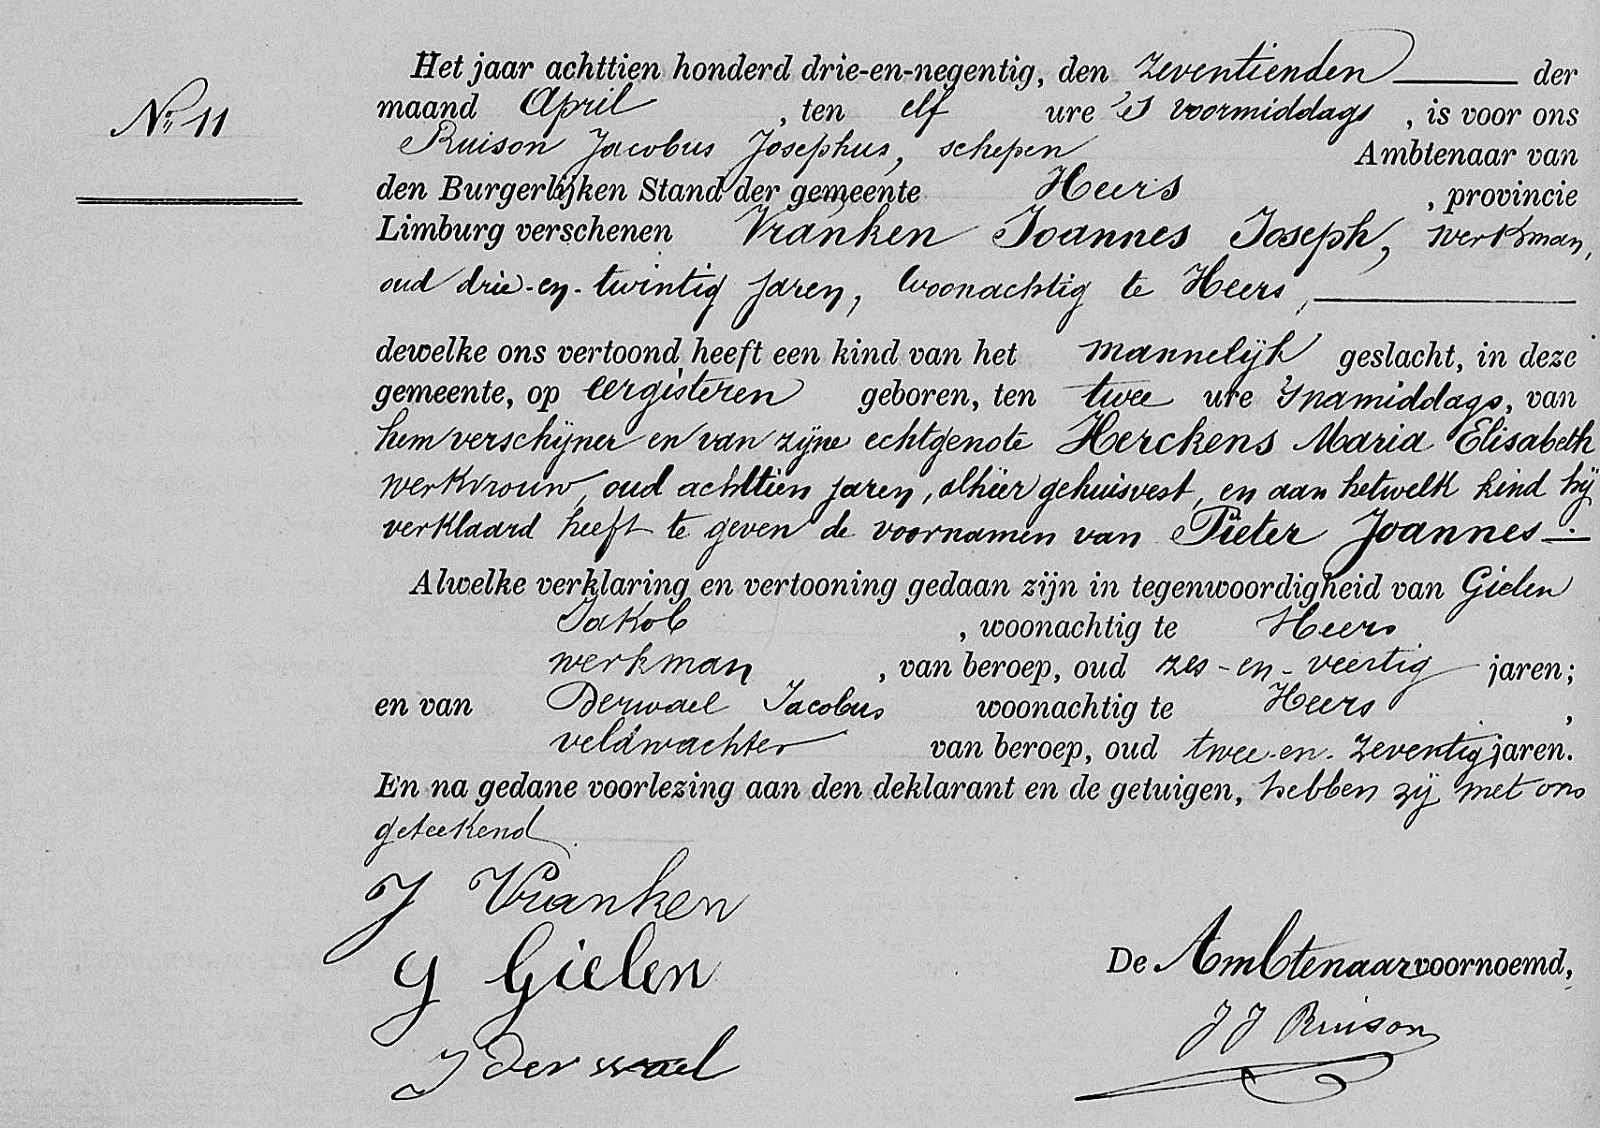 Het jaar achttien honderd drie-en-negentig, den zeventienden der
No 11
maand April, ten elf ure 's voormiddags, is voor ons
Ruison Jacobus Josephus, schepen Ambtenaar van
den Burgerlijken Stand der gemeente Heers, provincie
Limburg verschenen Vranken Joannes Joseph, werkman,
oud drie-en-twintig jaren, woonachtig te Heers,
dewelke ons vertoond heeft een kind van het mannelijk geslacht, in deze
gemeente, op eergisteren geboren, ten twee ure 's namiddags, van
hem verschijner en van zijne echtgenote Herckens Maria Elisabeth
werkvrouw, oud achttien jaren, alhier gehuisvest, en aan hetwelk kind hij
verklaard heeft te geven de voornamen van Pieter Joannes.
Alwelke verklaring en vertooning gedaan zijn in tegenwoordigheid van Gielen
Jakob, woonachtig te Heers
werkman, van beroep, oud zes-en-veertig jaren;
en van Derwael Jacobus woonachtig te Heers,
veldwachter van beroep, oud twee-en-zeventig jaren.
En na gedane voorlezing aan den deklarant en de getuigen, hebben zij met ons
geteekend
J Vranken
G Gielen
De Ambtenaar voornoemd,
J J Ruison
J Derwael